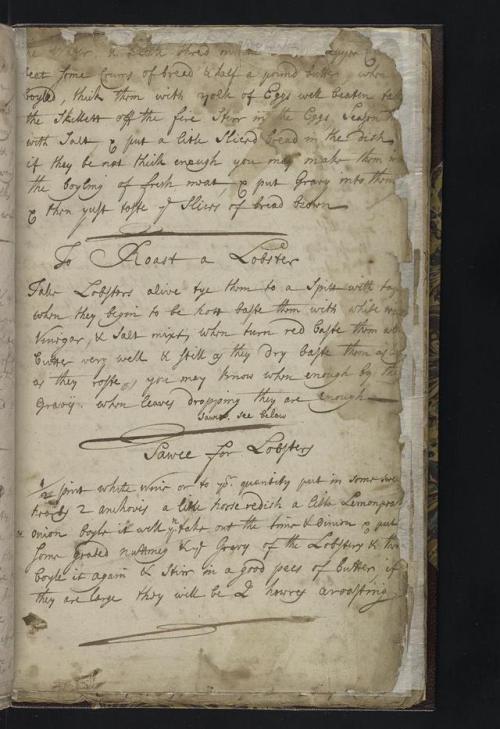 beat some Crums of bread & half a pound butter, when
boyled, thick them with yolk of Eggs well beaten
the Skillett off the fire Stirr in the Eggs Season
with Salt & put a little Sliced bread in the dish
if they be not thick enough you may make them
the boyling of fresh meat & put Gravy into them
& then just toste ye Slices of bread brown
To Roast a Lobster
Take Lobsters alive tye them to a Spitt with
when they begin to be hott baste them with white
Vinigar, & Salt mixt, when turn red baste them
butter very well & still as they dry baste them
as they roste, you may know when enough by the
Gravy when leaves dropping they are enough
Sawce, see below
Sawce for Lobsters
1/2 pint white wine or to yr quantity put in some
2 anchovis a little horse redish a little Lemon
onion boyle it well yn take out the & onion & put
some grated nuttmeg & ye Gravy of the Lobsters &
boyle it again & Stirr in a good peec of butter if
they are large they will be 2 howres aroasting